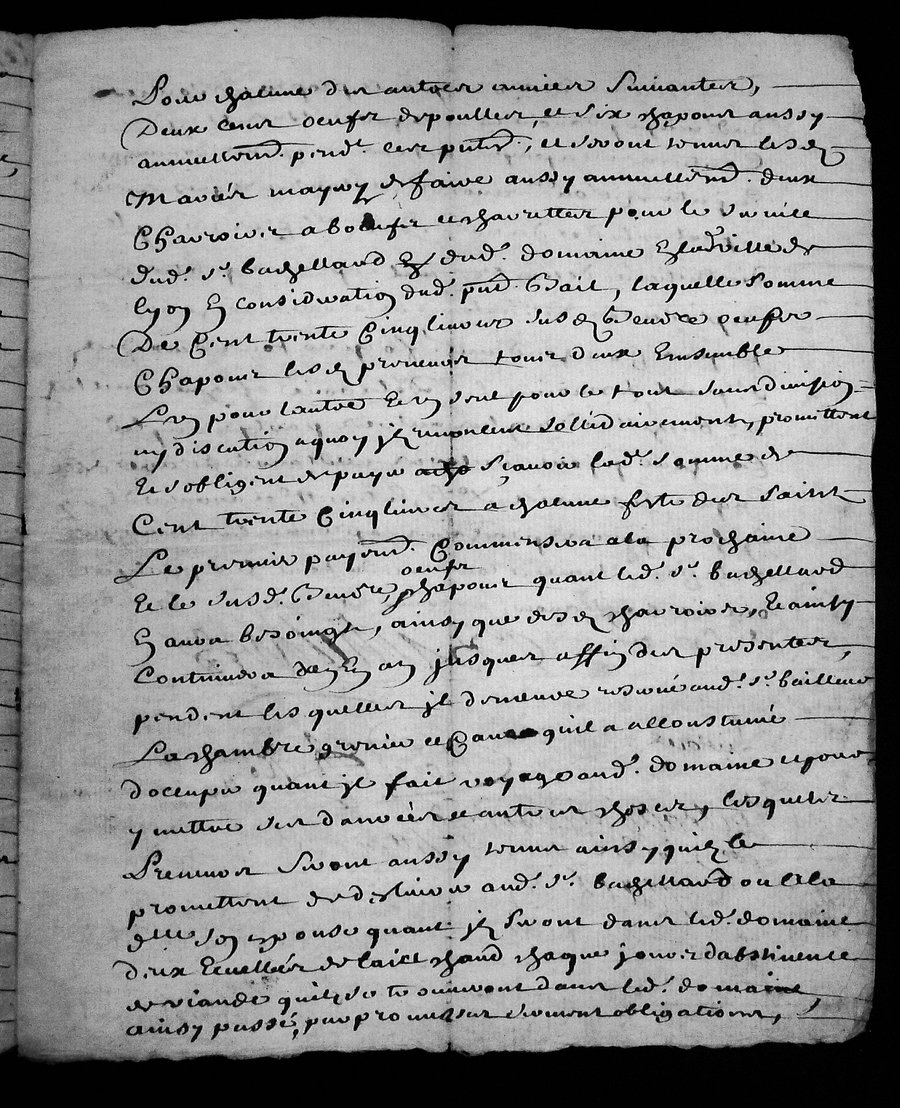 Pour chacune des autres années suivantes,
Deux cens oeufs de poulles, et six chapons aussy
annuellemt. pendt. ces pntes., et seront tenus lesd
Mariés mayoy de faire aussy annuellemt. deux
Charrois a boeufs et charrettes pour le service
dud. sr. bachelland dud. domaine ladte. ville de
lyon en consideration dud. pnt. Bail, laquelle somme
De Cent trente Cinq livres susd beurre oeufs
Chapons lesd preneurs tous deux Ensemble
L'un pour lautre Et un seul pour le tout sans division
ny discution a quoy jlz renoncent sollidairement, promettent
Et sobligent de payer sçavoir lad. somme de
Cent trente Cinq livres a chacune feste des Saint
Le premier payemt. Commensera a la prochaine
Et le susd. Beurre oeufs chapons quant led. sr. bachelland
En aura besoingt, ainsy que desd charrois, Et ainsy
Continuera dan En an jusques a fin des presentes,
pendent lesquelles jl demeure reservé aud. sr. bailleur
La chambre grenier et Cave quil a accoustumé
doccuper quant jl fait voyage aud. domaine et pour
y mettre ses danrées et autres choses, lesquels
Preneurs seront aussy tenus ainsy quilz le
promettent de deslivrer aud. sr. bachelland ou a la
dlle son espouse quant jlz seront dans led. domaine
deux Ecuelles de laict chaud chaque jours dabstinence
de viande quilz se trouveront dans led. domaine,
ainsy passé, par promesses serment obligations,